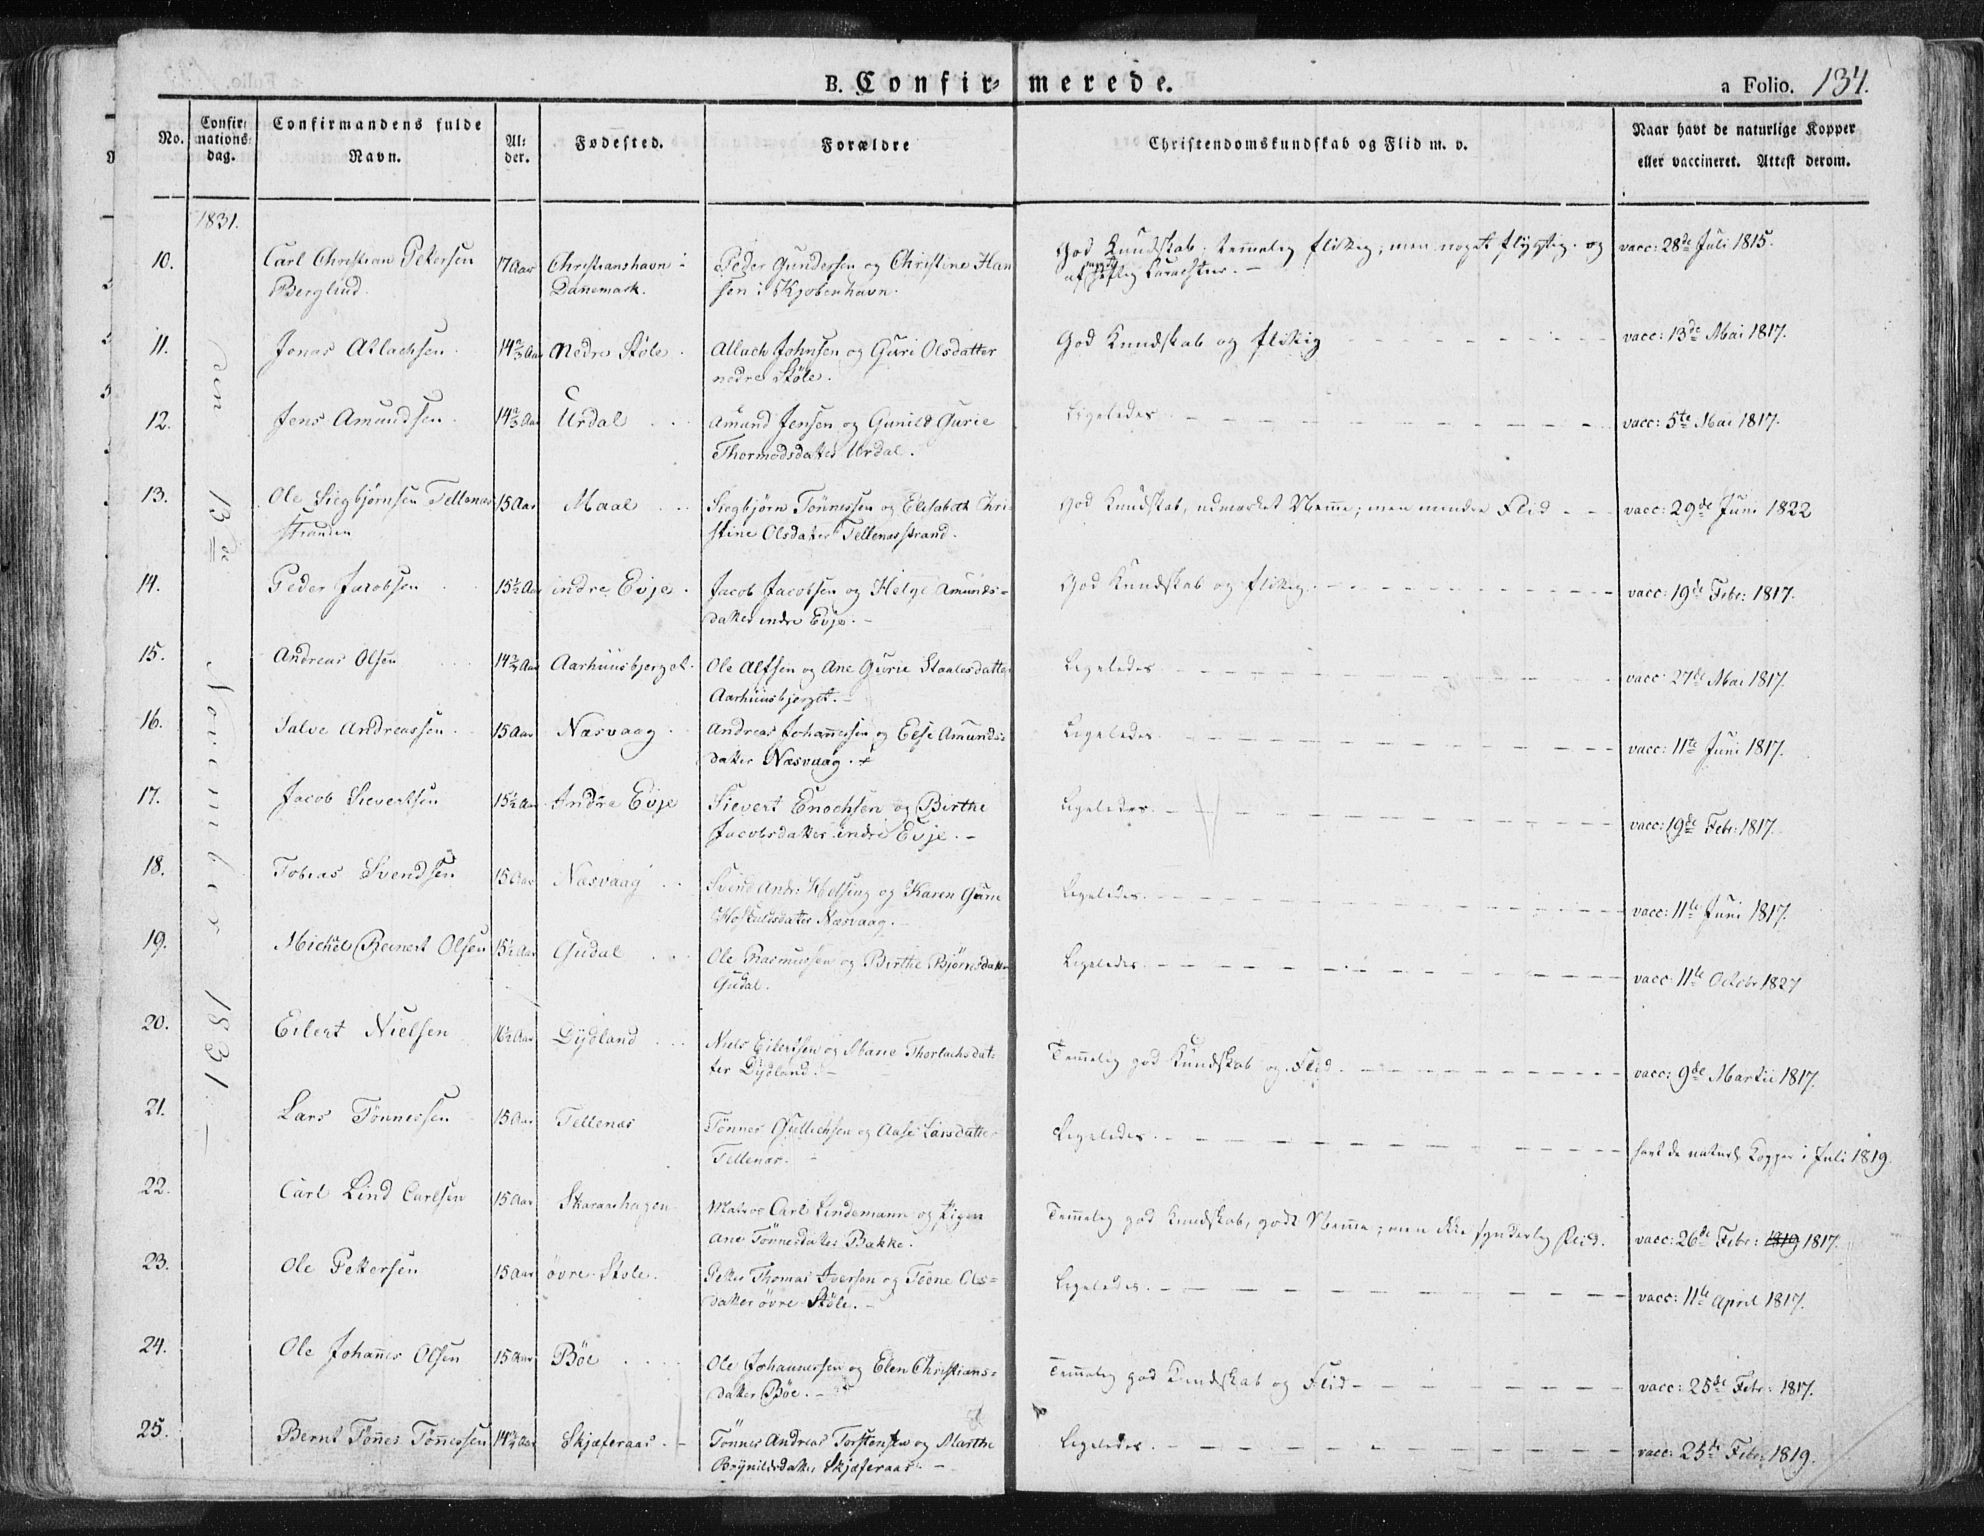 B. Confirmerede.
a Folio. 134.
No.
Confirmations dag.
Confirmandens fulde Navn.
Alder.
Fødested.
Forældre
Christendomskundskab og Flid m. v.
Naar havt de naturlige Kopper eller vaccineret. Attest derom.
1831.
den 13de November 1831.
10. Carl Christian Petersen 17 Aar Christianshavn i Peder Gundersen og Christine Han God Kundskab. temmelig flittig; men noget flygtig og vacc: 28de Juli 1815.
Berglund. Danemark. sen i Kjøbenhavn. af heftig Caracter.
11. Jonas Atlachsen 14 Aar Nedre Støle Atlach Johnsen og Guri Olsdatter God Kundskab og flittig vacc: 13de Mai 1817.
nedre Støle.
12. Jens Amundsen 14 Aar Urdal Amund Jensen og Gunild Gurie Ligeledes vacc: 5te Mai 1817.
Thormodsdatter Urdal.
13. Ole Siegbjørnsen Tellenas 15 Aar Maal Siegbjørn Tønnessen og Elisabeth Chri- God Kundskab, udmærket Nemme; men mindre Flid vacc: 29de Juni 1822
stranden stine Olsdatter Tellenasstrand.
14. Peder Jacobsen 15½ Aar indre Evje Jacob Jacobsen og Helge Amunds- God Kundskab og flittig. vacc: 19de Febr: 1817.
datter indre Evje.
15. Andreas Olsen 14 Aar Aarhuusbjerget Ole Alfsen og Ane Gurie Staalesdatter Ligeledes vacc: 27de Mai 1817.
Aarhuusbjerget.
16. Salve Andreassen 15 Aar Næsvaag Andreas Johannessen og Else Amunds- Ligeledes vacc: 11te Juni 1817.
datter Næsvaag.
17. Jacob Sievertsen 15½ Aar Indre Evje Sievert Enochsen og Birthe Ligeledes. vacc: 19de Febr: 1817.
Jacobsdatter indre Evje.
18. Tobias Svendsen 15 Aar Næsvaag Svend Andr: Helsing og Karen Gurie Ligeledes. vacc: 11te Juni 1817.
Hoskuldsdatter Næsvaag.
19. Michel Reinert Olsen 15½ Aar Gudal Ole Rasmussen og Birthe Bjørnsdatter Ligeledes. vacc: 11te Octobr 1827
Gudal.
20. Eilert Nielsen 16½ Aar Dydland Niels Eilertsen og Stane Thorlachsdat- Temmelig god Kundskab og Flid vacc: 9de Martii 1817.
ter Dydland.
21. Lars Tønnessen 15 Aar Tellenas Tønnes Gullichsen og Aase Larsdatter Ligeledes. havt de naturl. Kopper i Juli 1819.
Tellenas.
22. Carl Lind Carlsen 15 Aar Skaraashagen Matros Carl Lindemann og Pigen Temmelig god Kundskab, godt Nemme; men ikke synderlig Flid. vacc: 26de Febr: 1819 1817.
Ane Tønnesdatter Bakke.
23. Ole Pettersen 15 Aar øvre Støle. Petter Thomas Iversen og Tone Ols- Ligeledes. vacc: 11te April 1817.
datter øvre Støle.
24. Ole Johannes Olsen 15 Aar Bøe Ole Johannessen og Elen Christians- Temmelig god Kundskab og Flid vacc: 25de Febr: 1817.
datter Bøe.
25. Bernt Tønnes Tønnessen 14 Aar Skjæferaas. Tønnes Andreas Torstensen og Marthe Ligeledes. vacc: 25de Febr 1819.
Brynildsdatter Skjæferaas.